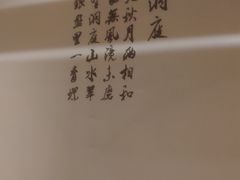 洞庭
秋月兩相和
無風鏡未磨
洞庭山水翠
銀盤里一青螺